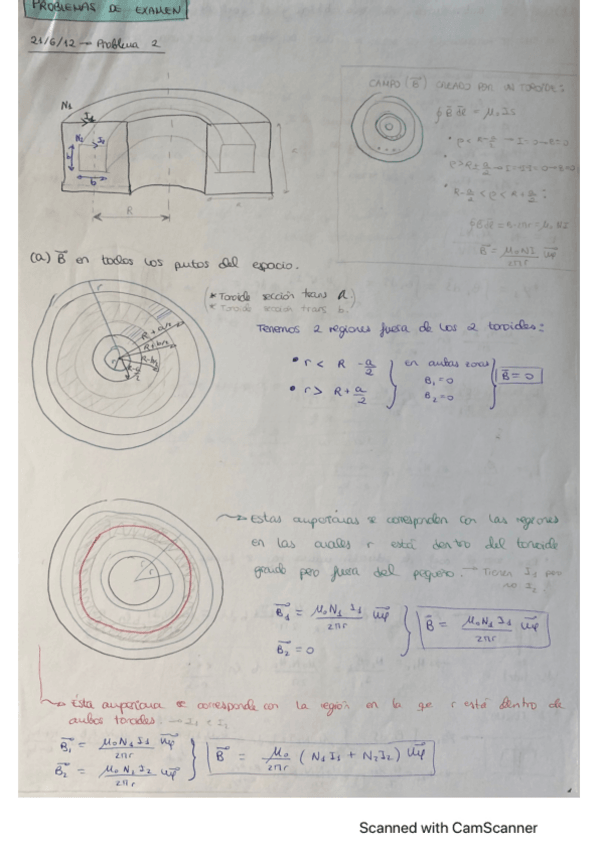 PROBLEMAS DE EXAMEN
21/6/12 → Problema 2
CAMPO (B⃗) CREADO POR UN TOROIDE:
∮ B⃗ dl⃗ = μ₀ I
N1
I1
N2
I2
b
R
R - a/2 < ρ < R + a/2 :
B⃗ = μ₀NI / 2πr u⃗φ
(a) B⃗ en todos los putos del espacio.
(* Toroide sección trans a.)
* Toroide sección trans b.
r
R+a/2
R+b/2
R-b/2
Tenemos 2 regiones fuera de los 2 toroides:
• r < R - a/2
• r > R + a/2
en ambas zonas
B₁=0
B₂=0
B⃗ = 0
r
r
Estas amperianas se corresponden con las regiones
en las cuales r está dentro del toroide
grande pero fuera del pequeño. → Tienen I1 pero
no I2
B⃗₁ = μ₀N₁I₁ / 2πr u⃗φ
B⃗₂ = 0
B⃗ = μ₀N₁I₁ / 2πr u⃗φ
Ésta amperiana se corresponde con la región en la que r está dentro de
ambos toroides. → I1 e I2
B⃗₁ = μ₀N₁I₁ / 2πr u⃗φ
B⃗₂ = μ₀N₂I₂ / 2πr u⃗φ
B⃗ = μ₀ / 2πr (N₁I₁ + N₂I₂) u⃗φ
Scanned with CamScanner